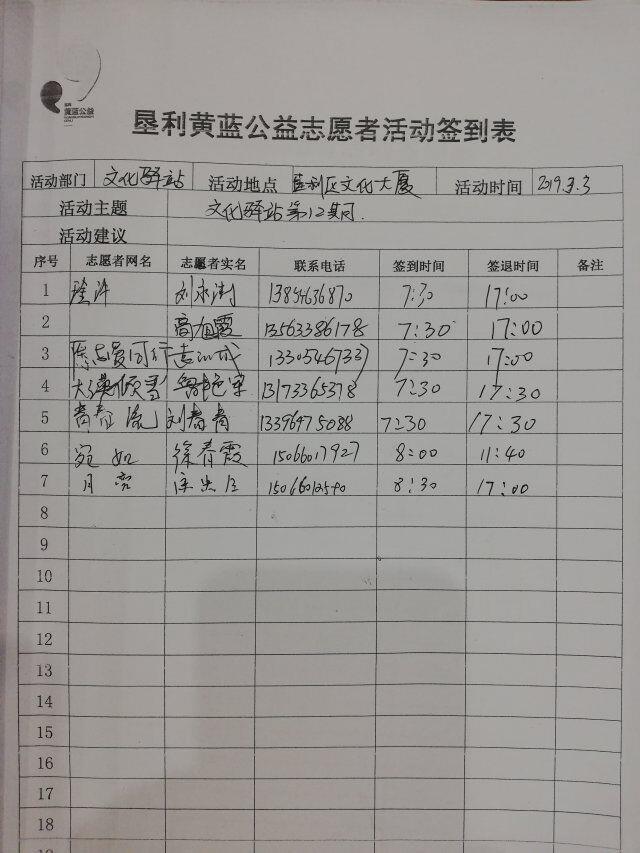 黄蓝公益
垦利黄蓝公益志愿者活动签到表
活动部门 文化驿站 活动地点 垦利区文化大厦 活动时间 2019.3.3
活动主题 文化驿站第12期
活动建议
序号 志愿者网名 志愿者实名 联系电话 签到时间 签退时间 备注
1 刘永涛 13854636870 7:30 17:00
2 高旭霞 13563386178 7:30 17:00
3 13305467337 7:30 17:00
4 13173365378 7:30 17:30
5 刘春青 13396475088 7:30 17:30
6 宛如 徐春霞 15066017927 8:00 11:40
7 月亮 8:30 17:00
8
9
10
11
12
13
14
15
16
17
18